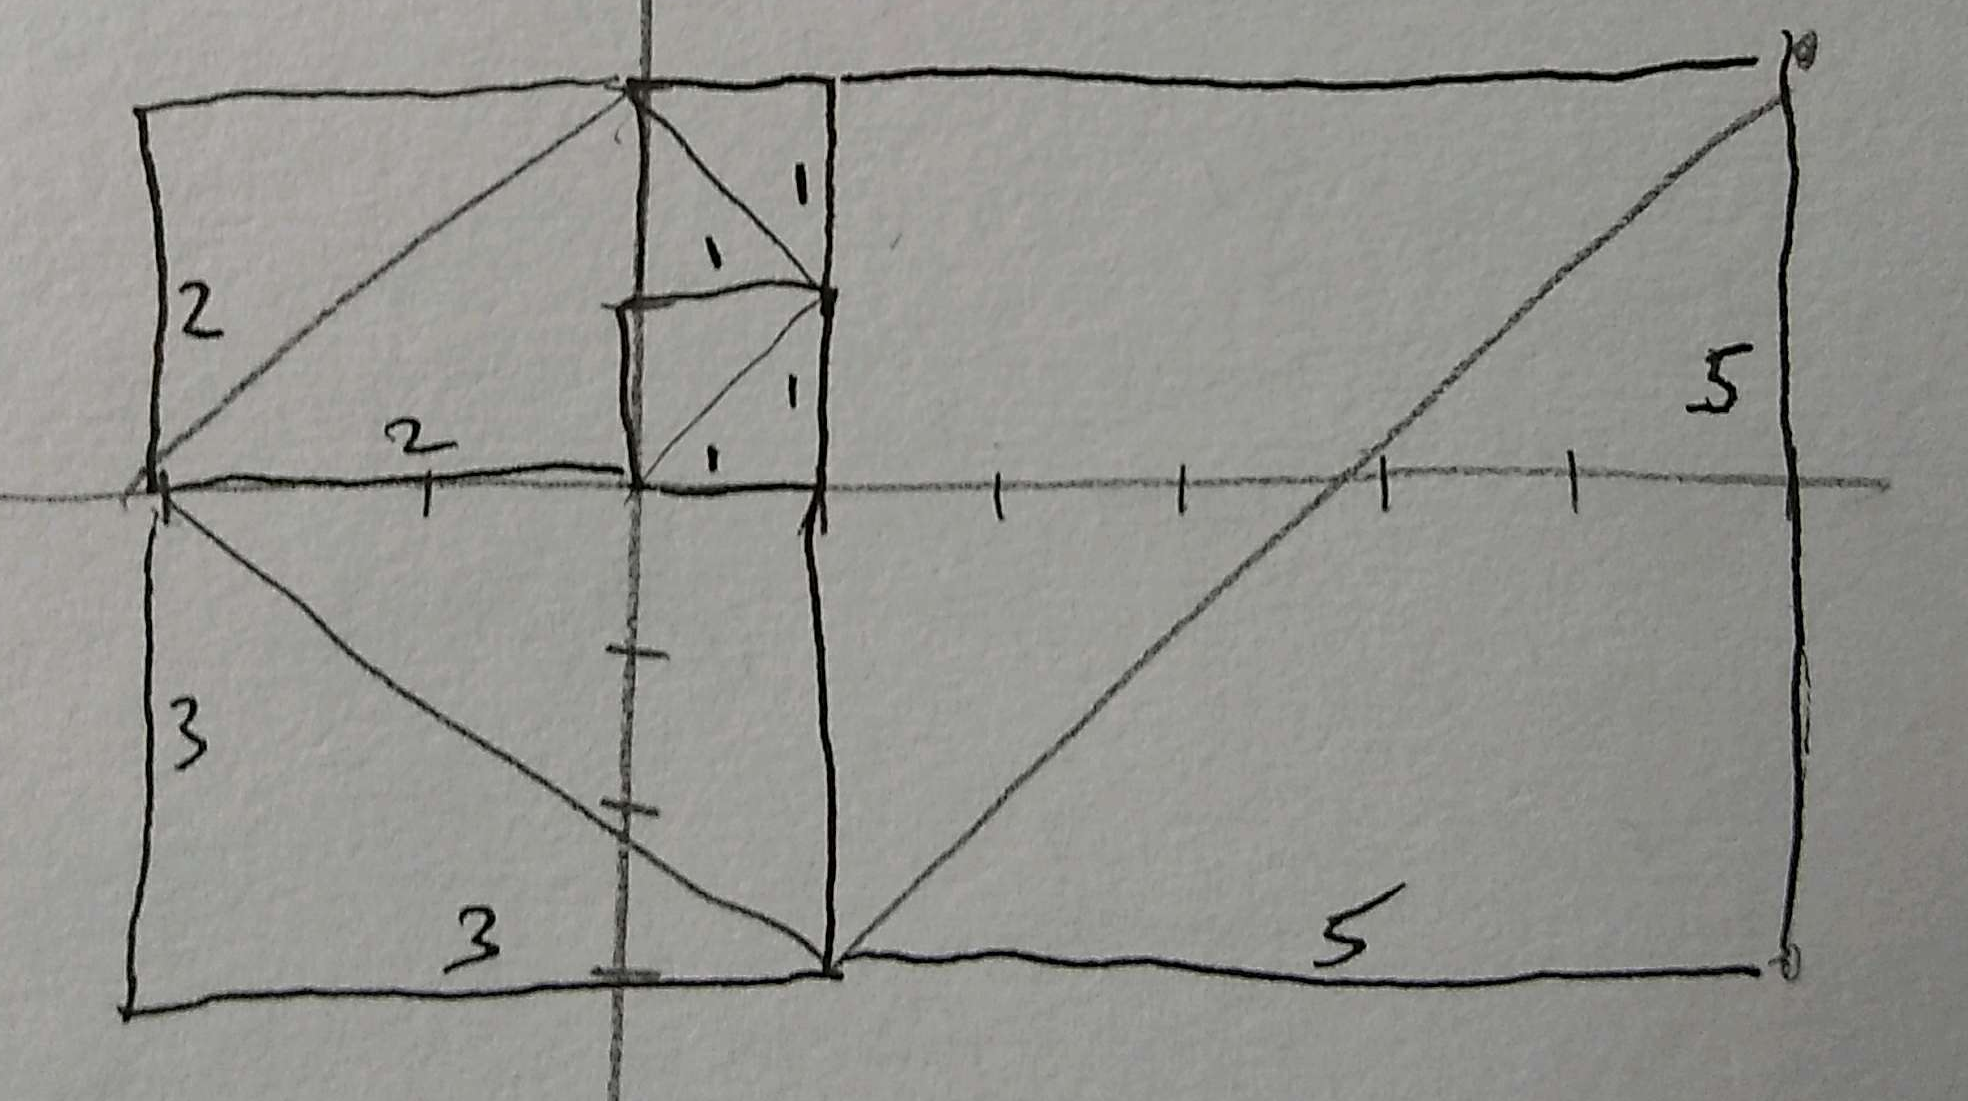 1
1
2
1
5
2
1
3
3
5